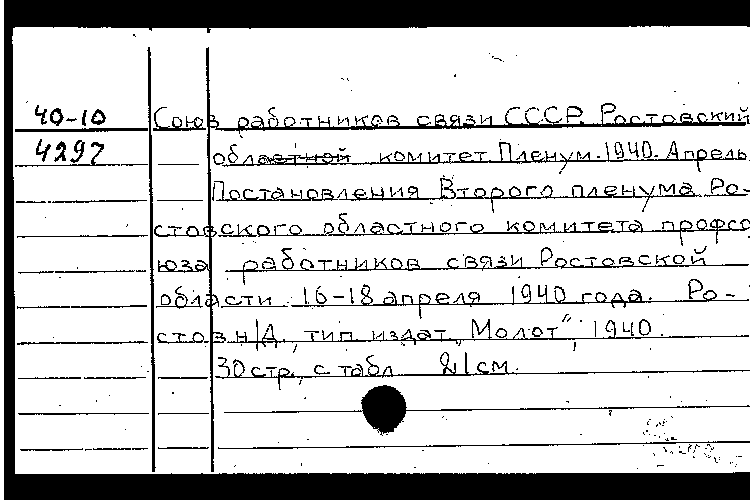 40-10 Союз работников связи СССР. Ростовский
4297 областной комитет Пленум. 1940. Апрель
Постановления Второго пленума Ро-
стовского областного комитета профсо
юза работников связи Ростовской
области 16-18 апреля 1940 года. Ро-
стов н/Д., тип. издат. „Молот“, 1940.
30 стр., с табл 21 см.